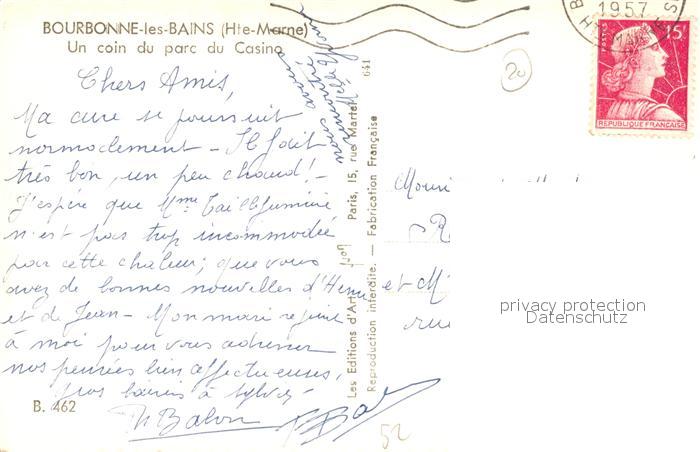 BOURBONNE-les-BAINS (Hte-Marne)
Un coin du parc du Casino
Chers Amis,
Ma cure se poursuit
normalement - Il fait
très bon, un peu chaud! -
J'espère que Mme Taillefumière
n'est pas trop incommodée
par cette chaleur; que vous
avez de bonnes nouvelles d'Henri
et de Jean - Mon mari se joint
à moi pour vous adresser
nos pensées bien affectueuses,
gros baisers à Sylvie -
M Balou
B. 462
nous avons
rencontré
Les Editions d'Art
Paris, 15, rue Martel
641
Reproduction interdite. — Fabrication Française
20
1957
HTE MARNE
POSTES
15F
REPUBLIQUE FRANÇAISE
et M
rue
privacy protection
Datenschutz
52